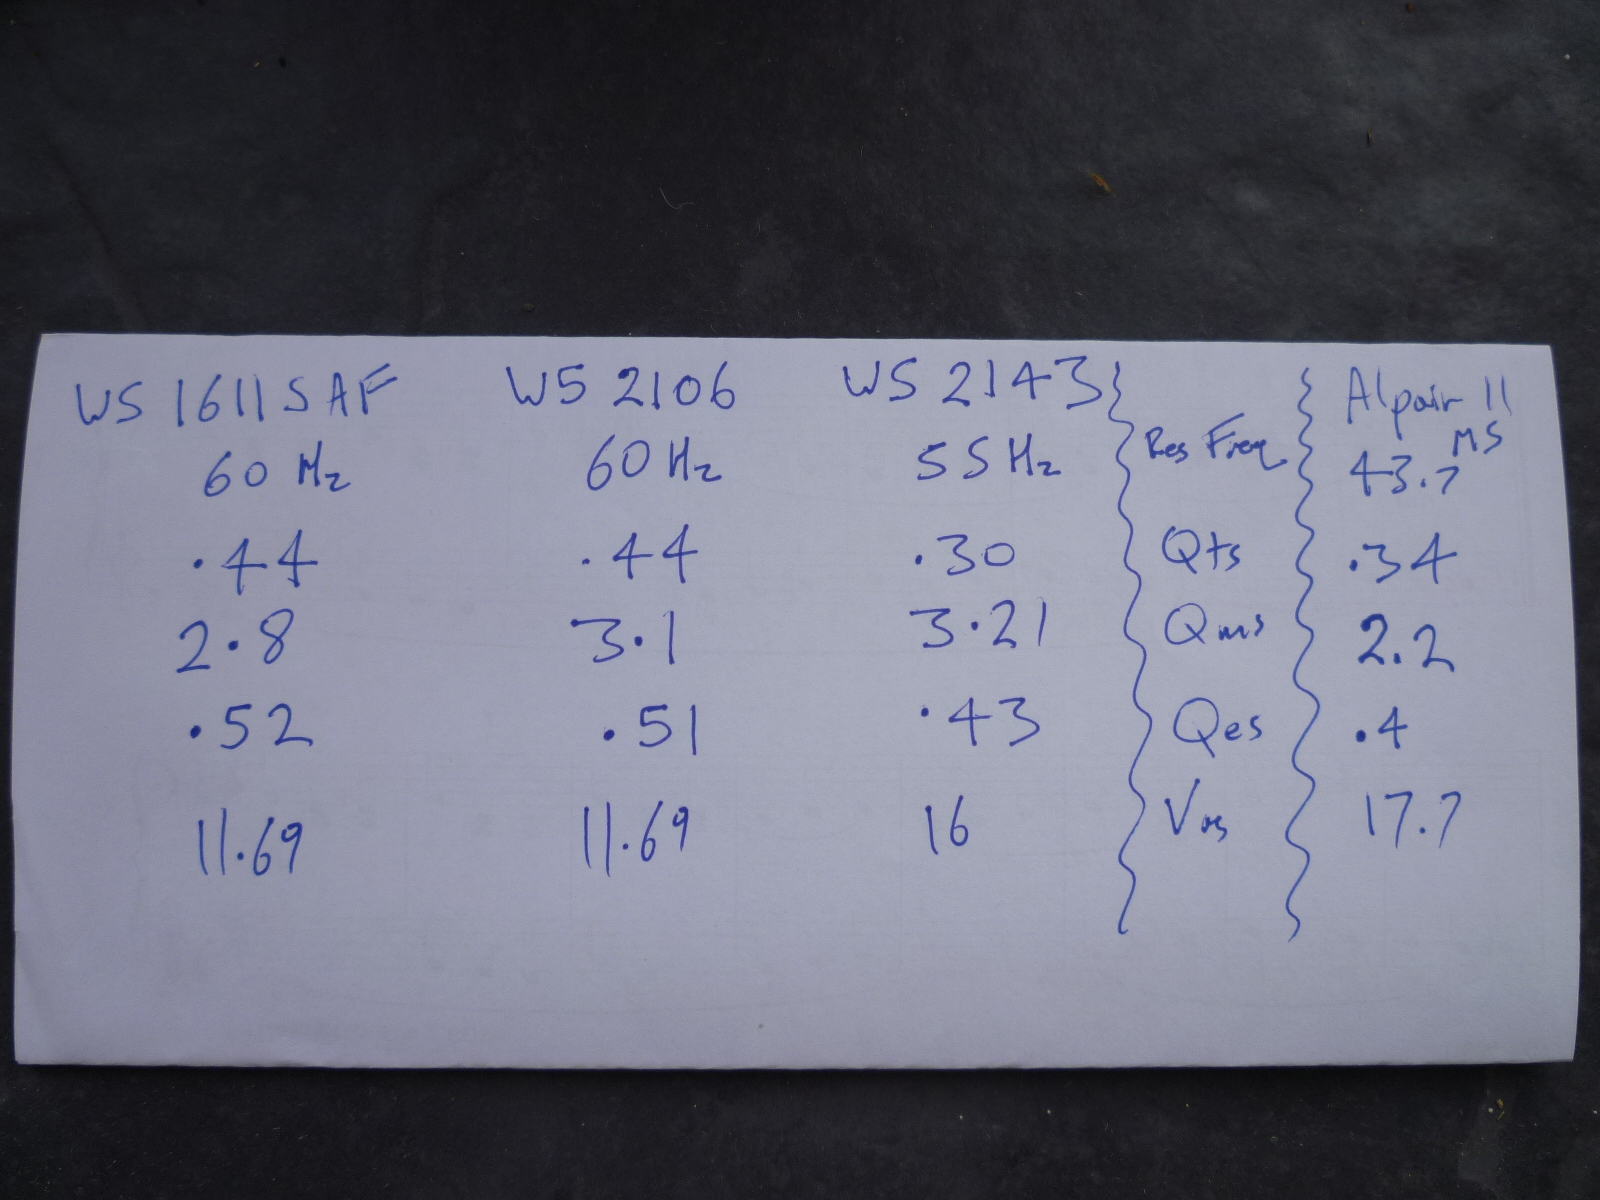 W5 1611 SAF W5 2106 W5 2143 Alpair 11 MS
60 Hz 60 Hz 55 Hz Res Freq 43.7
.44 .44 .30 Qts .34
2.8 3.1 3.21 Qms 2.2
.52 .51 .43 Qes .4
11.69 11.69 16 17.7